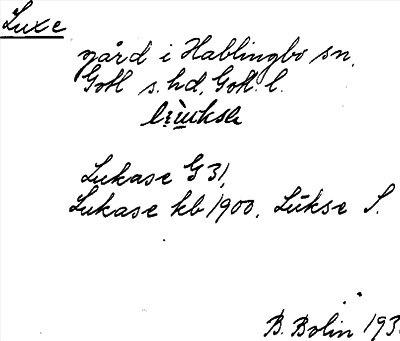 Luxe
gård i Hablingbo sn,
Gotl s. hd, Gotl. l.
Lukase G 31,
Lukase kb 1900. Lükse S.
B. Bolin 193